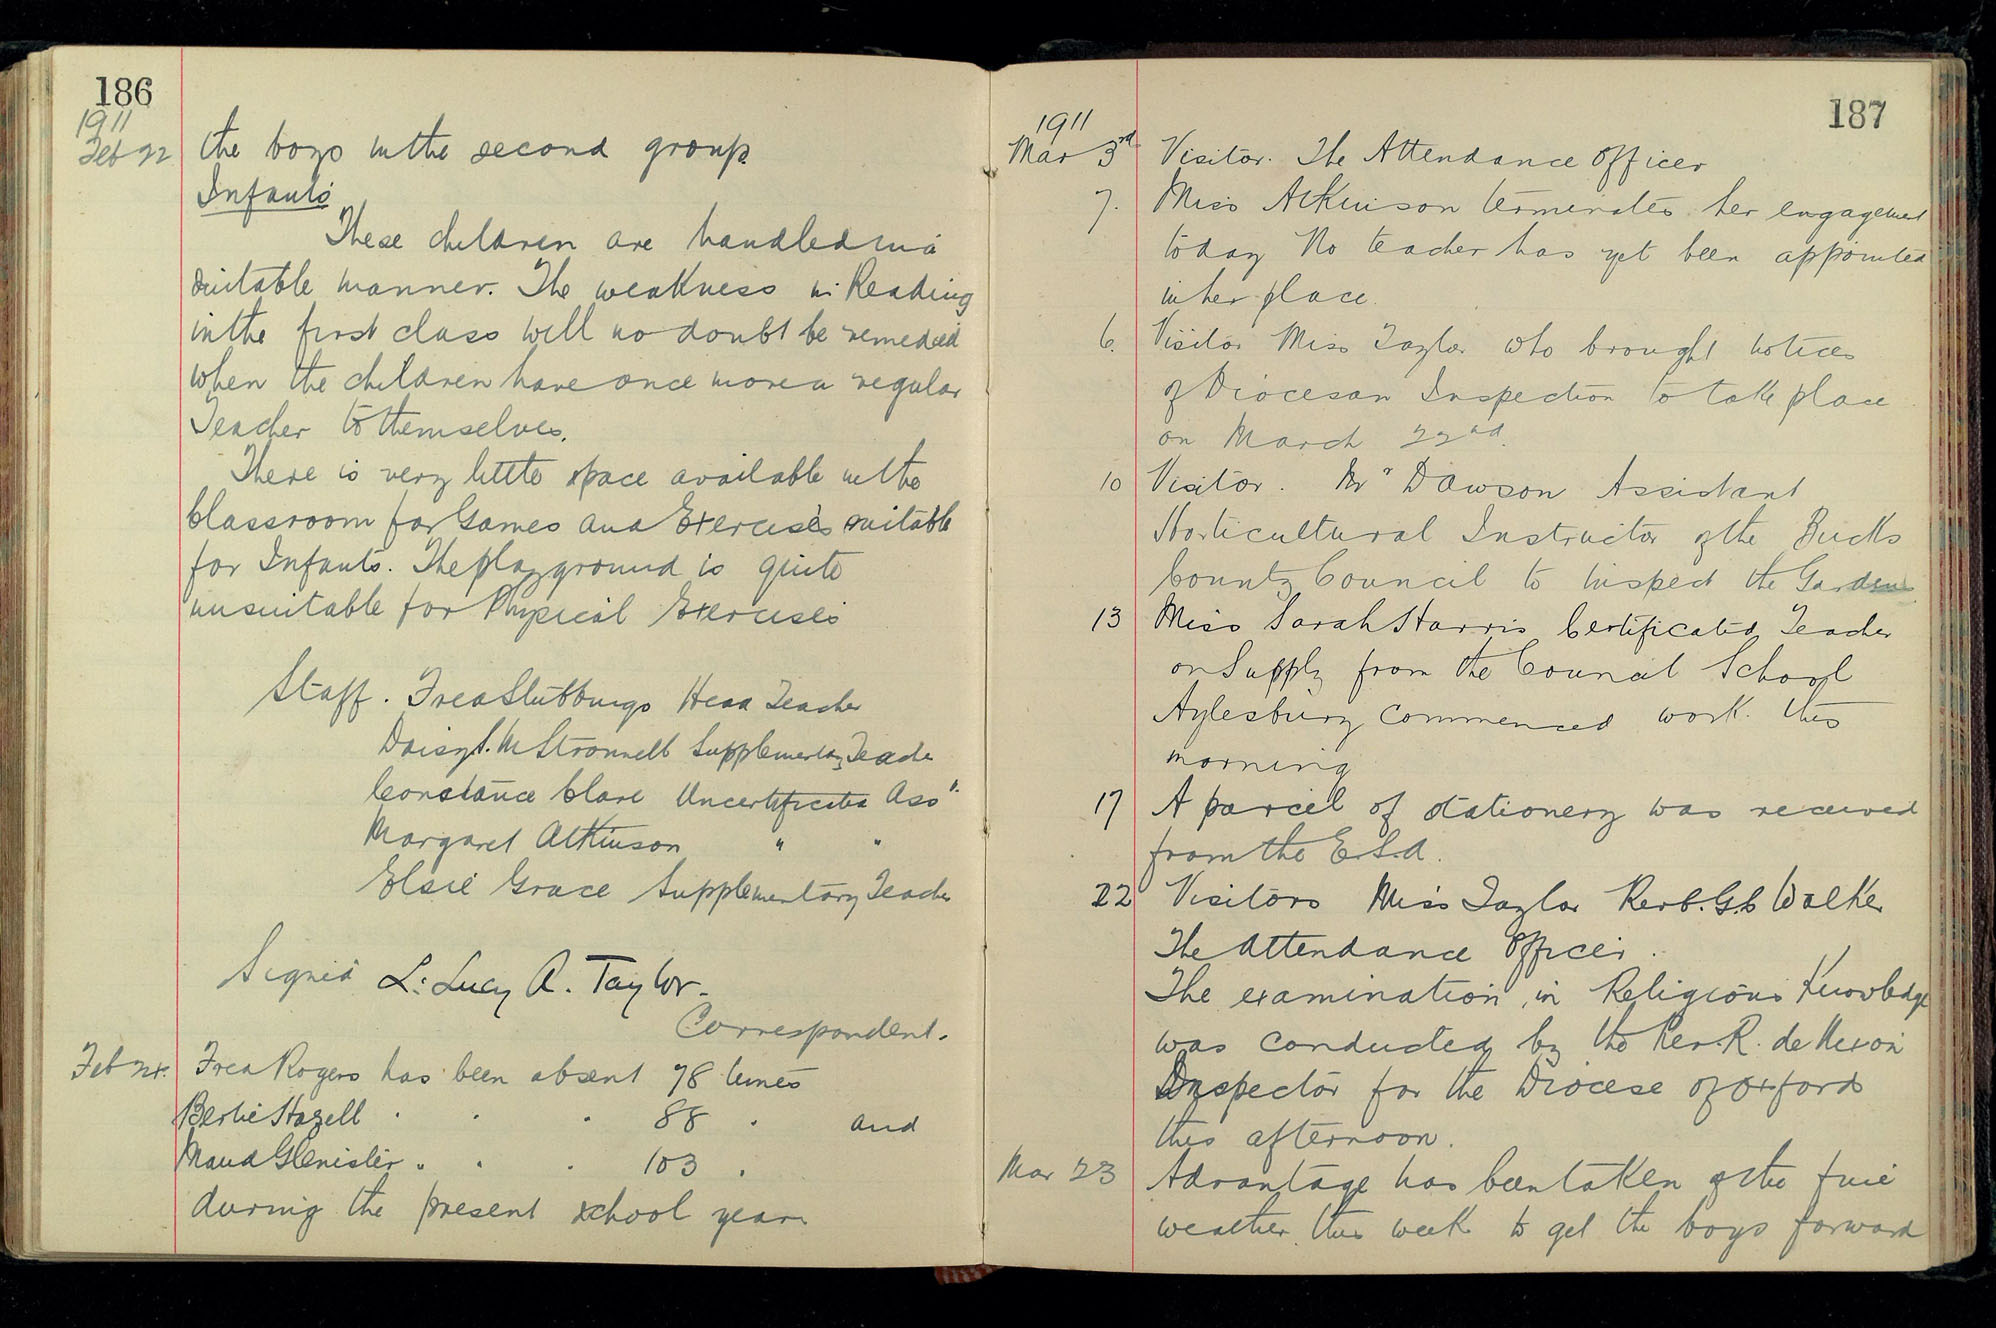 186
1911
Feb 22 the boys in the second group.
Infants
These children are handled in a
suitable manner. The weakness in Reading
in the first class will no doubt be remedied
when the children have once more a regular
Teacher to themselves.
There is very little space available in the
Classroom for Games and Exercises suitable
for Infants. The playground is quite
unsuitable for Physical Exercises
Staff. Fred Stubbings Head Teacher
Daisy L. M Stronnell Supplementary Teacher
Constance Clare Uncertificated Ass^t
Margaret Atkinson " "
Elsie Grace Supplementary Teacher
Signed L. Lucy A. Taylor.
Correspondent.
Feb 24. Fred Rogers has been absent 78 times
Bertie Hazell " " " 88 " and
Maud Glenister " " " 103 "
during the present school year
187
1911
Mar 3rd Visitor. The Attendance Officer
7. Miss Atkinson terminates her engagement
today No teacher has yet been appointed
in her place.
6. Visitor Miss Taylor who brought notices
of Diocesan Inspection to take place
on March 22nd.
10 Visitor. Mr Dawson Assistant
Horticultural Instructor of the Bucks
County Council to inspect the Gardens
13 Miss Sarah Harris Certificated Teacher
on Supply from the Council School
Aylesbury commenced work this
morning
17 A parcel of stationery was received
from the E.S.A.
22 Visitors Miss Taylor Rev. G.C Walker
The Attendance Officer.
The examination in Religious Knowledge
was conducted by the Rev. R. de
Inspector for the Diocese of Oxford
this afternoon.
Mar 23 Advantage has been taken of the fine
weather this week to get the boys forward